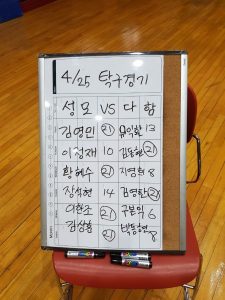 4/25 탁구경기
성모 VS 다함
김영민 21 유익한 13
이성재 10 김동현 21
황혜수 21 지영현 8
장석현 14 김영환 21
이찬조 21 구본익 6
김상용 박동현 8